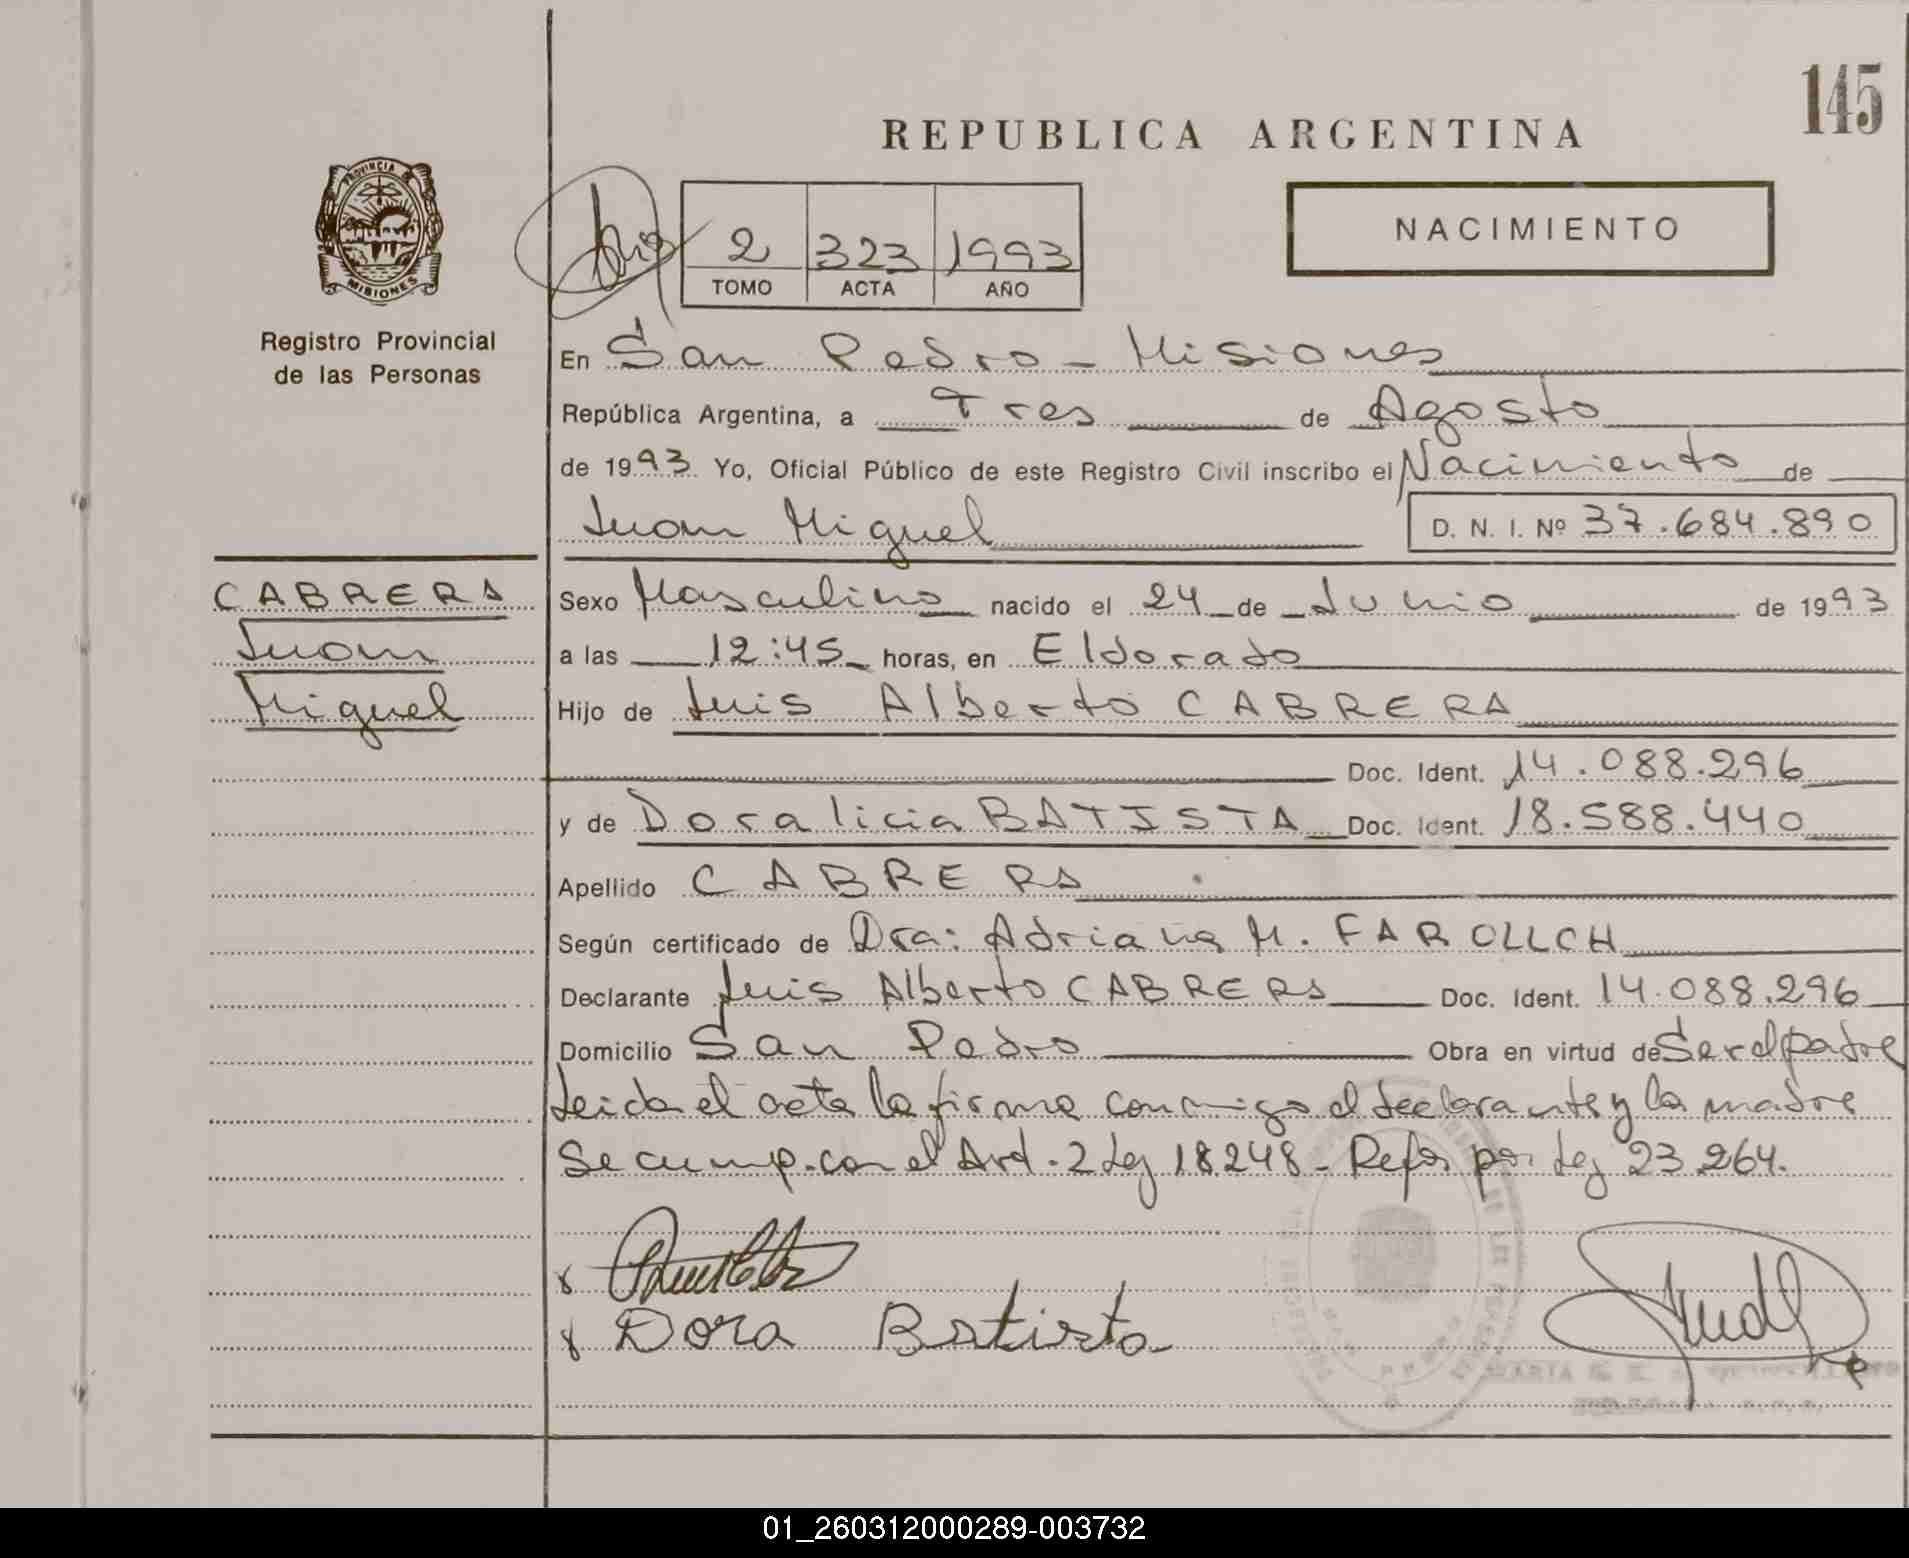 145
REPUBLICA ARGENTINA
PROVINCIA DE
MISIONES
Registro Provincial
de las Personas
2 323 1993
TOMO ACTA AÑO
NACIMIENTO
En San Pedro - Misiones
República Argentina, a Tres de Agosto
de 1993. Yo, Oficial Público de este Registro Civil inscribo el Nacimiento de
Juan Miguel D. N. I. Nº 37.684.890
CABRERA
Juan
Miguel
Sexo Masculino nacido el 24 de Junio de 1993
a las 12:45 horas, en Eldorado
Hijo de Luis Alberto CABRERA
Doc. Ident. 14.088.296
y de Doralicia BATISTA Doc. Ident. 18.588.440
Apellido CABRERA
Según certificado de Dra: Adriana M. FAROLLCH
Declarante Luis Alberto CABRERA Doc. Ident. 14.088.296
Domicilio San Pedro Obra en virtud de Ser el padre
Leida el acta la firma conmigo el declarante y la madre
Se cump. con el Art. 2 Ley 18.248 - Refor por Ley 23.264.
Dora Batista
01_260312000289-003732